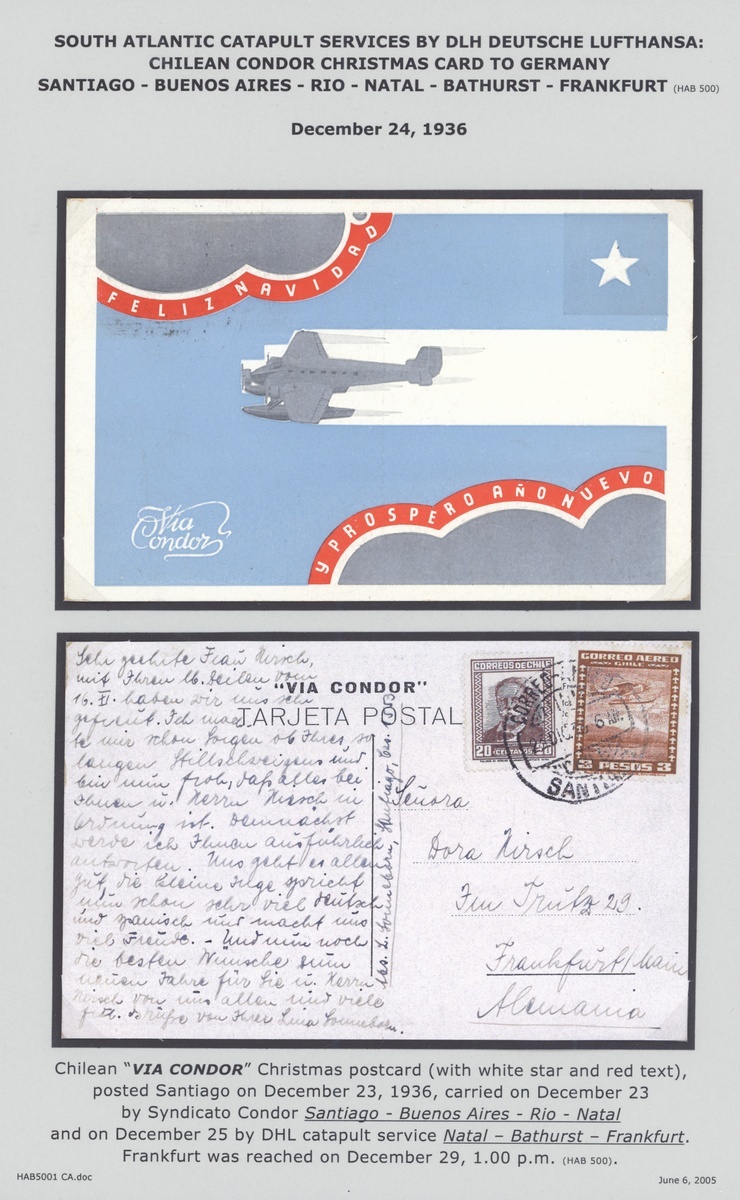 SOUTH ATLANTIC CATAPULT SERVICES BY DLH DEUTSCHE LUFTHANSA:
CHILEAN CONDOR CHRISTMAS CARD TO GERMANY
SANTIAGO - BUENOS AIRES - RIO - NATAL - BATHURST - FRANKFURT (HAB 500)
December 24, 1936
FELIZ NAVIDAD
Via
Condor
Y PROSPERO AÑO NUEVO
Sehr geehrte Frau Hirsch,
mit Ihren lb. Zeilen vom
16. XI. haben wir uns sehr
gefreut. Ich mach
te mir schon Sorgen ob Ihres so
langen Stillschweigens und
bin nun froh, daß alles bei
Ihnen u. Herrn Hirsch in
Ordnung ist. Demnächst
werde ich Ihnen ausführlich
antworten. Uns geht es allen
gut, die kleine Inge spricht
nun schon sehr viel deutsch
und spanisch und macht uns
viel Freude. - Und nun noch
die besten Wünsche zum
neuen Jahre für Sie u. Herrn
Hirsch von uns allen und viele
Grüße von Ihrer Lina Sonneborn.
"VIA CONDOR"
TARJETA POSTAL
L. Sonneborn, Santiago,
CORREOS DE CHILE
20 CENTAVOS 20
CORREO AEREO
CHILE
3 PESOS 3
CORREO
DIC
SANTI
Señora
Dora Hirsch
Im Trutz 29.
Frankfurt/Main
Alemania
Chilean "VIA CONDOR" Christmas postcard (with white star and red text),
posted Santiago on December 23, 1936, carried on December 23
by Syndicato Condor Santiago - Buenos Aires - Rio - Natal
and on December 25 by DHL catapult service Natal – Bathurst – Frankfurt.
Frankfurt was reached on December 29, 1.00 p.m. (HAB 500).
HAB5001 CA.doc
June 6, 2005